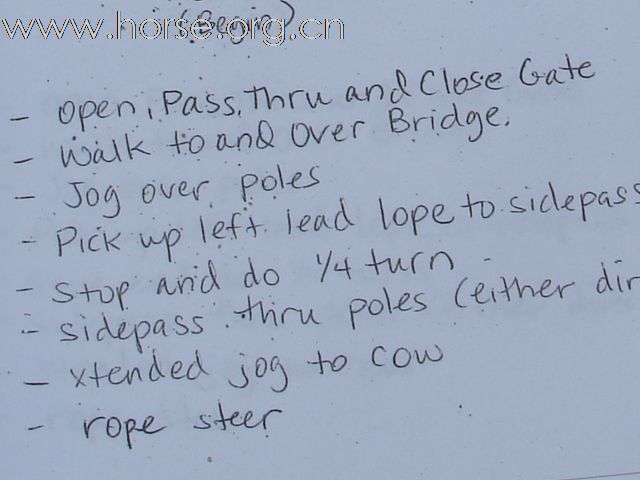 www.horse.org.cn
(Begin)
- Open, Pass, Thru and Close Gate
- Walk to and Over Bridge.
- Jog over poles
- Pick up left lead lope to sidepass
- Stop and do 1/4 turn
- sidepass thru poles (either dir
- xtended jog to cow
- rope steer